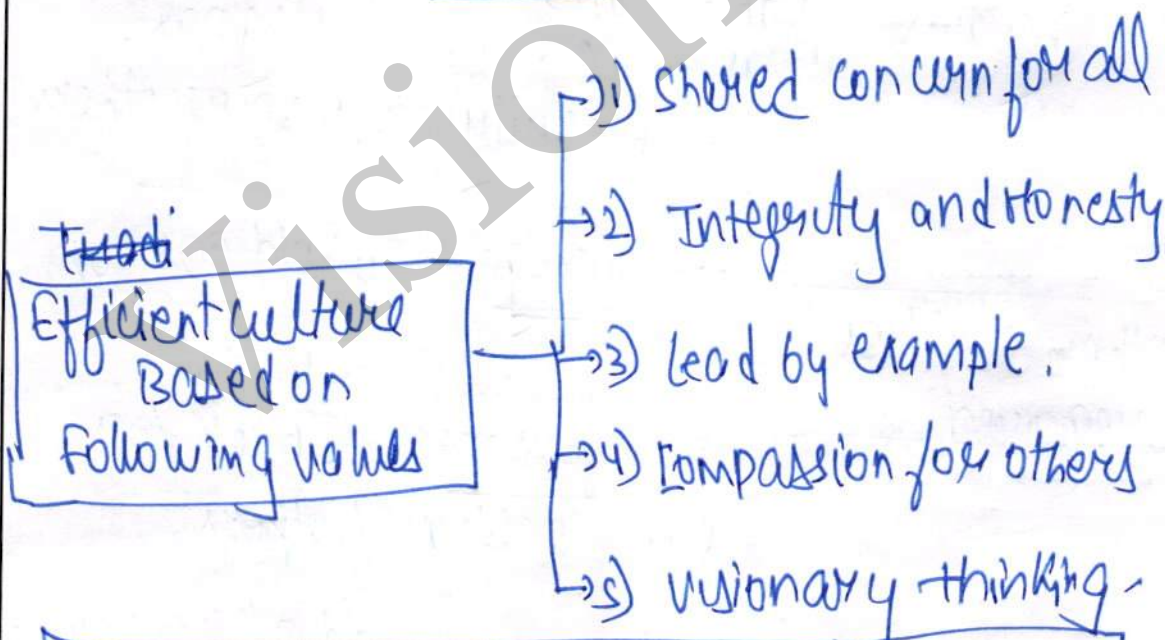 Efficient culture
Based on
Following values
→1) Shared concern for all
→2) Integrity and Honesty
→3) Lead by example.
→4) Compassion for others
→5) Visionary thinking.
Vision